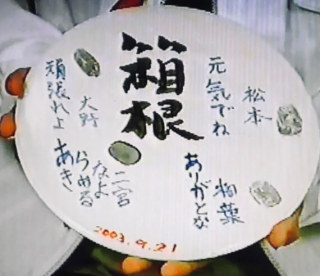 箱根
松本
元気でね
相葉
ありがとな
二宮
あきらめるなよ
大野
頑張れよ
2003.9.21